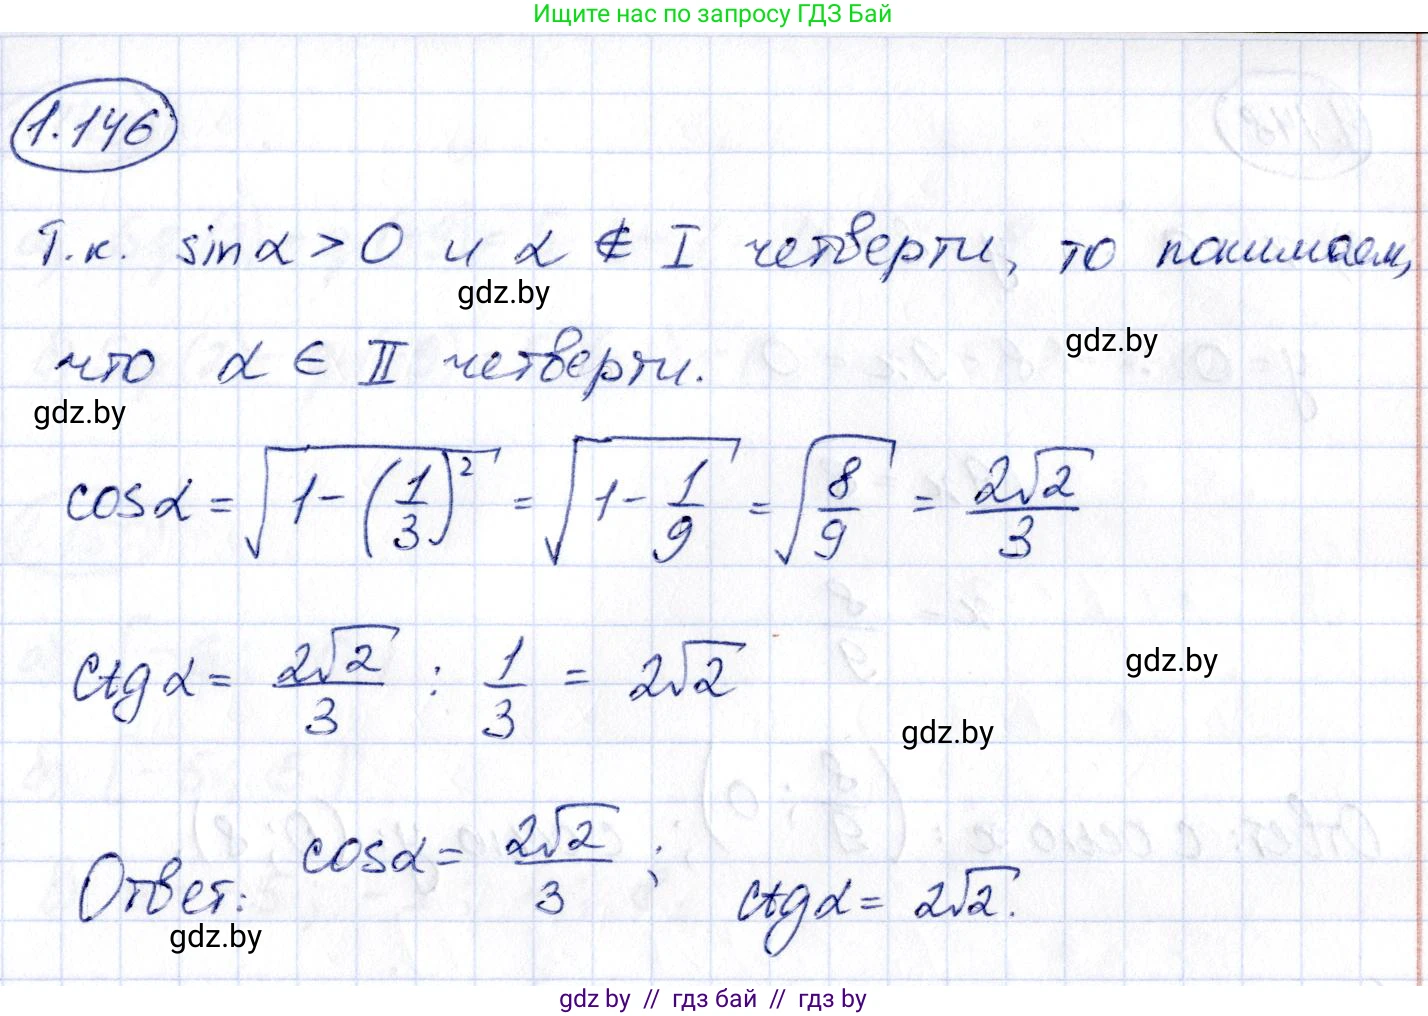 Ищите нас по запросу ГДЗ Бай
1.146
Т.к. sinα > 0 и α ∉ I четверти, то понимаем,
gdz.by
gdz.by
что α ∈ II четверти.
gdz.by
cosα = √(1 - (1/3)²) = √(1 - 1/9) = √(8/9) = 2√2/3
ctgα = 2√2/3 : 1/3 = 2√2
gdz.by
gdz.by
Ответ: cosα = 2√2/3 ; ctgα = 2√2.
gdz.by
gdz by // гдз бай // гдз by